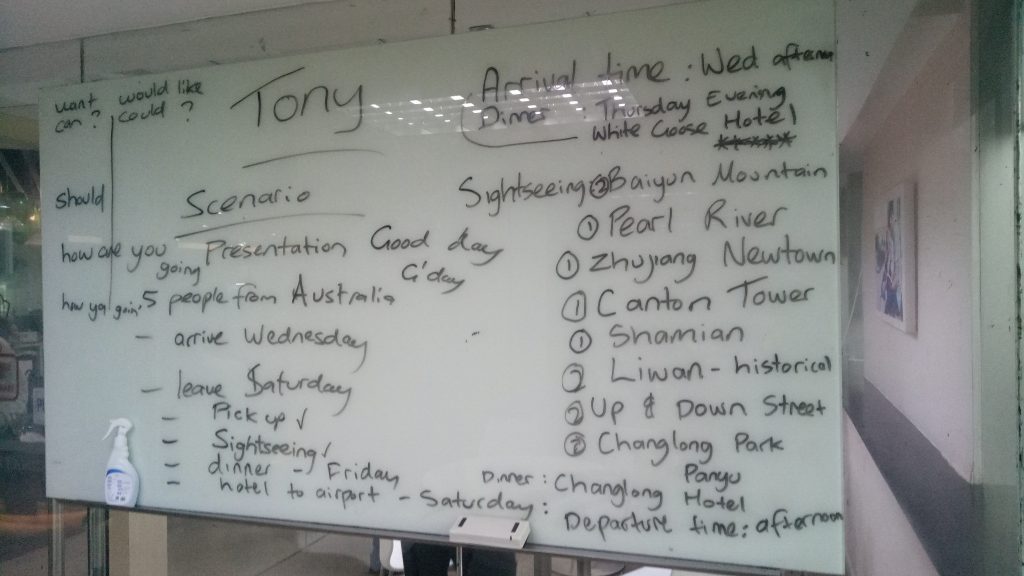 want would like
can? could?
should
how are you
going
how ya goin'
Tony
Scenario
Presentation Good day
G'day
5 people from Australia
- arrive Wednesday
- leave Saturday
- Pick up ✓
- Sightseeing ✓
- dinner - Friday
- hotel to airport - Saturday:
Arrival time: Wed afternoon
Dinner : Thursday Evening
White Goose Hotel
Sightseeing ② Baiyun Mountain
① Pearl River
① Zhujiang Newtown
① Canton Tower
① Shamian
② Liwan - historical
② Up & Down Street
③ Changlong Park
Panyu
Dinner: Changlong Hotel
Departure time: afternoon